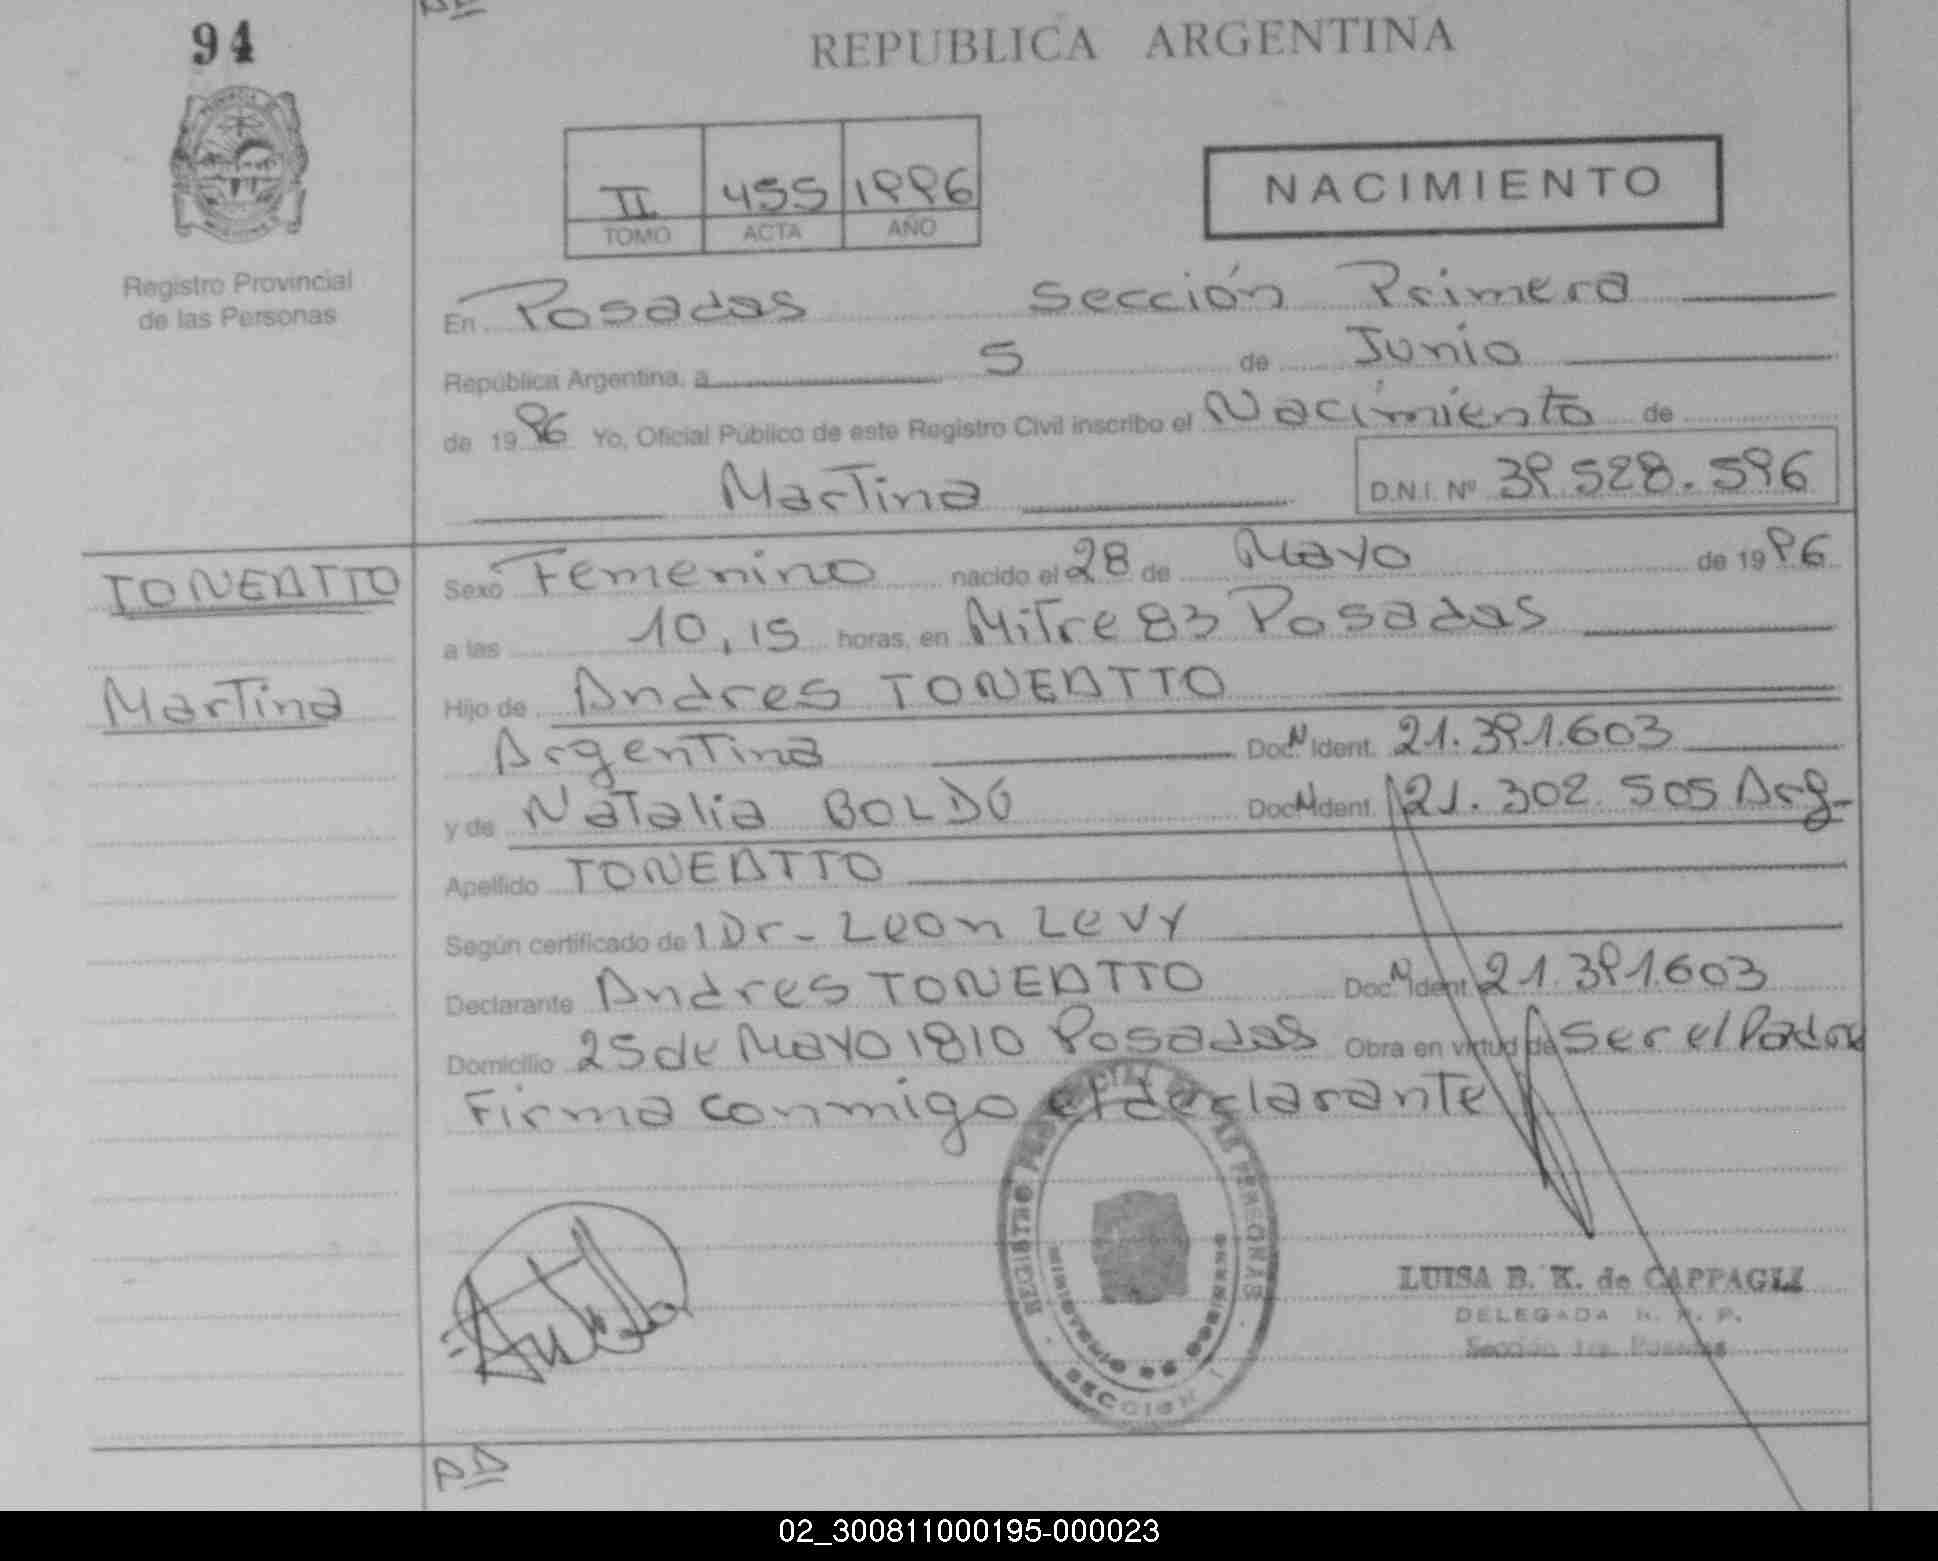 94
REPUBLICA ARGENTINA
II 455 1996
TOMO ACTA AÑO
NACIMIENTO
Registro Provincial
de las Personas
En Posadas Sección Primera
República Argentina, a 5 de Junio
de 1996 Yo, Oficial Público de este Registro Civil inscribo el Nacimiento de
Martina D.N.I. Nº 39.528.596
TONEATTO
Martina
Sexo Femenino nacido el 28 de Mayo de 1996
a las 10,15 horas, en Mitre 83 Posadas
Hijo de Andres TONEATTO
Argentina Doc. N Ident. 21.391.603
y de Natalia BOLDÚ Doc. N Ident. 21.302.505 Arg.
Apellido TONEATTO
Según certificado de l Dr- Leon Levy
Declarante Andres TONEATTO Doc. N Ident. 21.391.603
Domicilio 25 de Mayo 1810 Posadas Obra en virtud de Ser el Padre
Firma conmigo el declarante
REGISTRO PROVINCIAL DE LAS PERSONAS
MINISTERIO DE GOBIERNO
SECCION 1
LUISA B. K. de CAPPAGLI
DELEGADA R. P. P.
Sección 1ra Posadas
PD
02_300811000195-000023